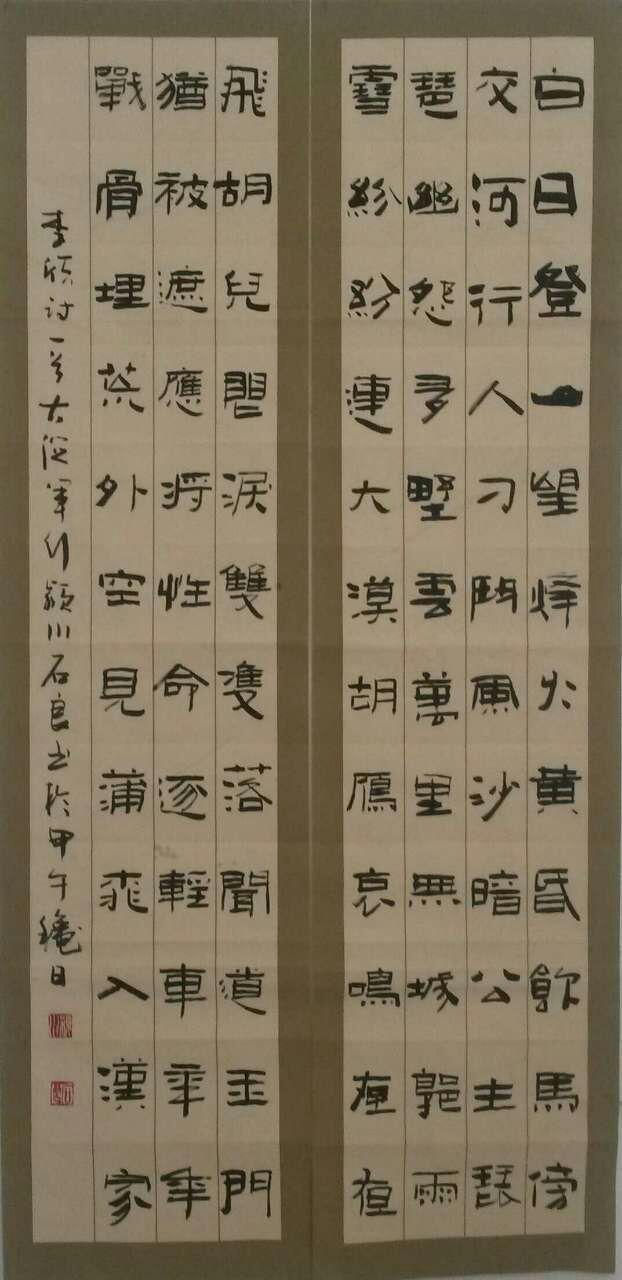 白日登山望烽火黄昏飲馬傍
交河行人刁鬥風沙暗公主琵
琶幽怨多墅雲萬里無城郭雨
雪紛紛連大漠胡鴈哀鳴夜夜
飛胡兒眼淚雙雙落聞道玉門
猶被遮應將性命逐輕車年年
戰骨埋荒外空見蒲桃入漢家
李頎詩一首古從軍行潁川石良书於甲午穐日